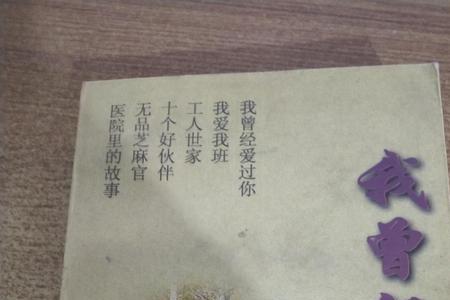 我曾
我曾经爱过你
我爱我班
工人世家
十个好伙伴
无品芝麻官
医院里的故事